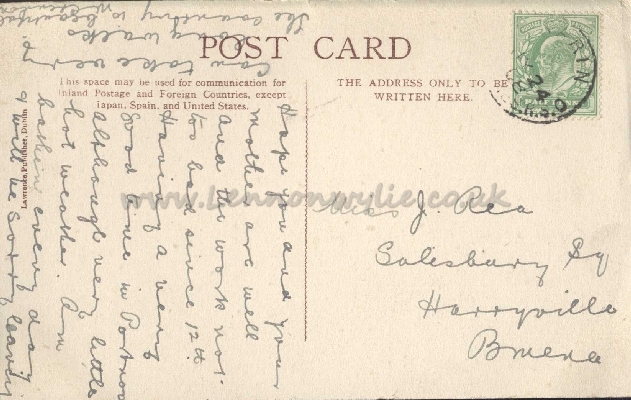 POST CARD
This space may be used for communication for
Inland Postage and Foreign Countries, except
Japan, Spain, and United States.
THE ADDRESS ONLY TO BE
WRITTEN HERE.
Lawrence, Publisher, Dublin
Hope you and your
mother are well
and the work not
too bad since 12th.
Having a very
good time in Portnoo
although very little
hot weather. Am
bathin every day
& will be sorry leavin
Can take very
long walks
The country is
beautiful
Miss J. Rea
Salesbury Sq
Harryville
Bmena
RIN
24
R.S.O
www.Lennonwylie.co.uk